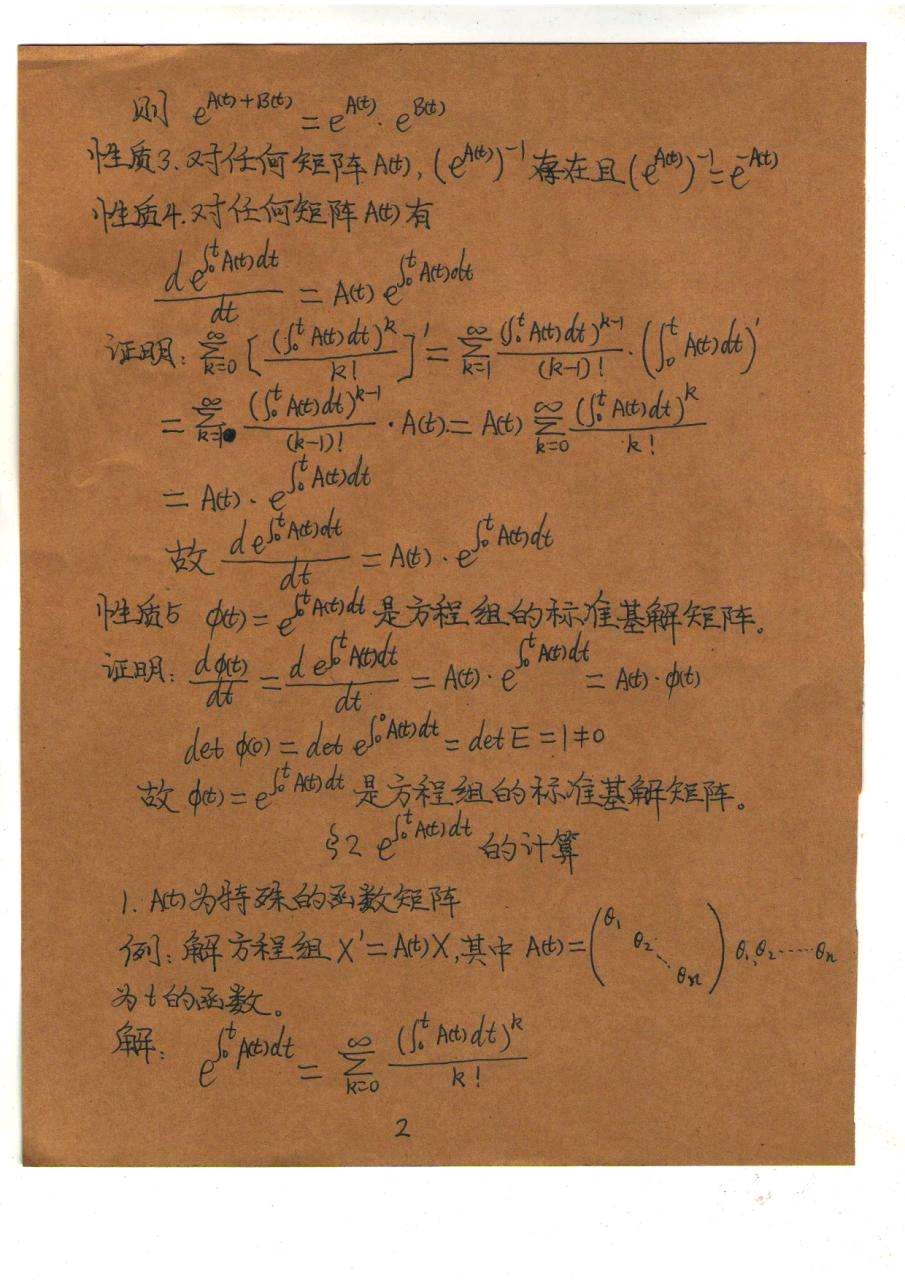 则 e^{A(t)+B(t)} = e^{A(t)} · e^{B(t)}
性质3. 对任何矩阵A(t), (e^{A(t)})^{-1} 存在且 (e^{A(t)})^{-1} = e^{-A(t)}
性质4. 对任何矩阵A(t)有
\frac{d e^{∫_0^t A(t)dt}}{dt} = A(t) e^{∫_0^t A(t)dt}
证明: \sum_{k=0}^{∞} [\frac{(∫_0^t A(t)dt)^k}{k!}]' = \sum_{k=1}^{∞} \frac{(∫_0^t A(t)dt)^{k-1}}{(k-1)!} · (∫_0^t A(t)dt)'
= \sum_{k=1}^{∞} \frac{(∫_0^t A(t)dt)^{k-1}}{(k-1)!} · A(t) = A(t) \sum_{k=0}^{∞} \frac{(∫_0^t A(t)dt)^k}{k!}
= A(t) · e^{∫_0^t A(t)dt}
故 \frac{d e^{∫_0^t A(t)dt}}{dt} = A(t) · e^{∫_0^t A(t)dt}
性质5 φ(t) = e^{∫_0^t A(t)dt} 是方程组的标准基解矩阵。
证明: \frac{dφ(t)}{dt} = \frac{d e^{∫_0^t A(t)dt}}{dt} = A(t) · e^{∫_0^t A(t)dt} = A(t) · φ(t)
det φ(0) = det e^{∫_0^0 A(t)dt} = det E = 1 ≠ 0
故 φ(t) = e^{∫_0^t A(t)dt} 是方程组的标准基解矩阵。
§2 e^{∫_0^t A(t)dt} 的计算
1. A(t)为特殊的函数矩阵
例: 解方程组 X' = A(t)X, 其中 A(t) = (θ_1 θ_2 ⋱ θ_n) θ_1, θ_2 ······ θ_n
为t的函数。
解: e^{∫_0^t A(t)dt} = \sum_{k=0}^{∞} \frac{(∫_0^t A(t)dt)^k}{k!}
2